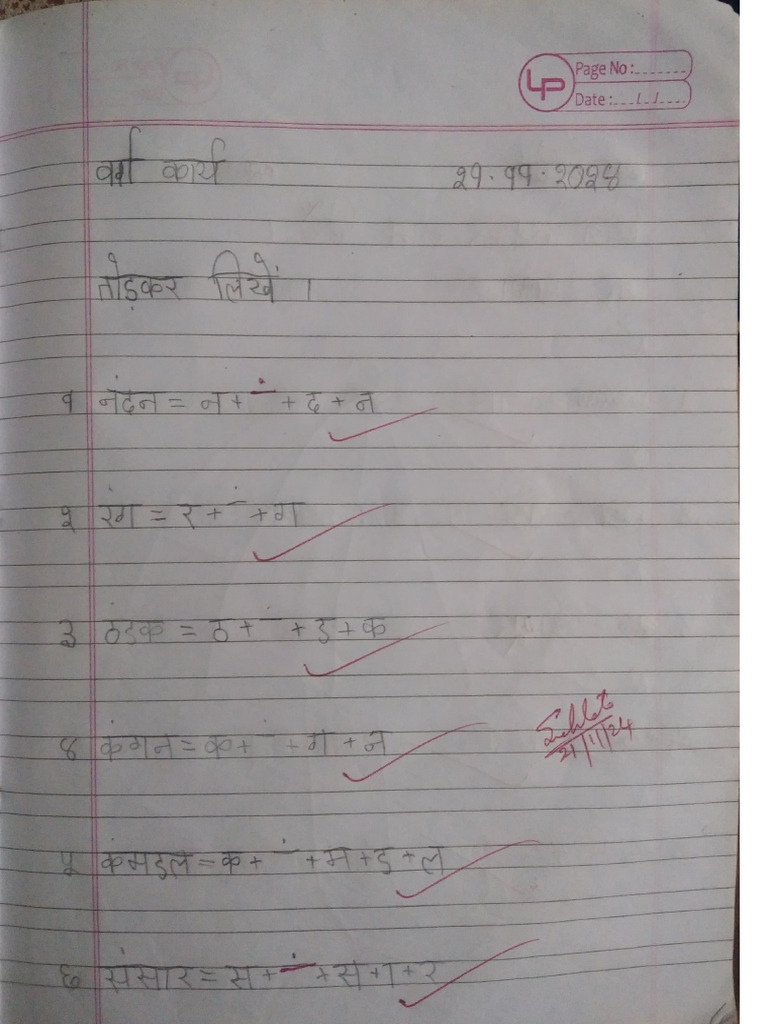 LP
Page No :.......
Date :.../../....
वर्ग कार्य २१.११.२०२४
तोड़कर लिखें ।
१ नंदन = न + ं + द + न
२ रंग = र + ं + ग
३ ठंडक = ठ + ं + ड + क
४ कंगन = क + ं + ग + न
21/11/24
५ कंमडल = क + ं + म + ड + ल
६ संसार = स + ं + स + ा + र